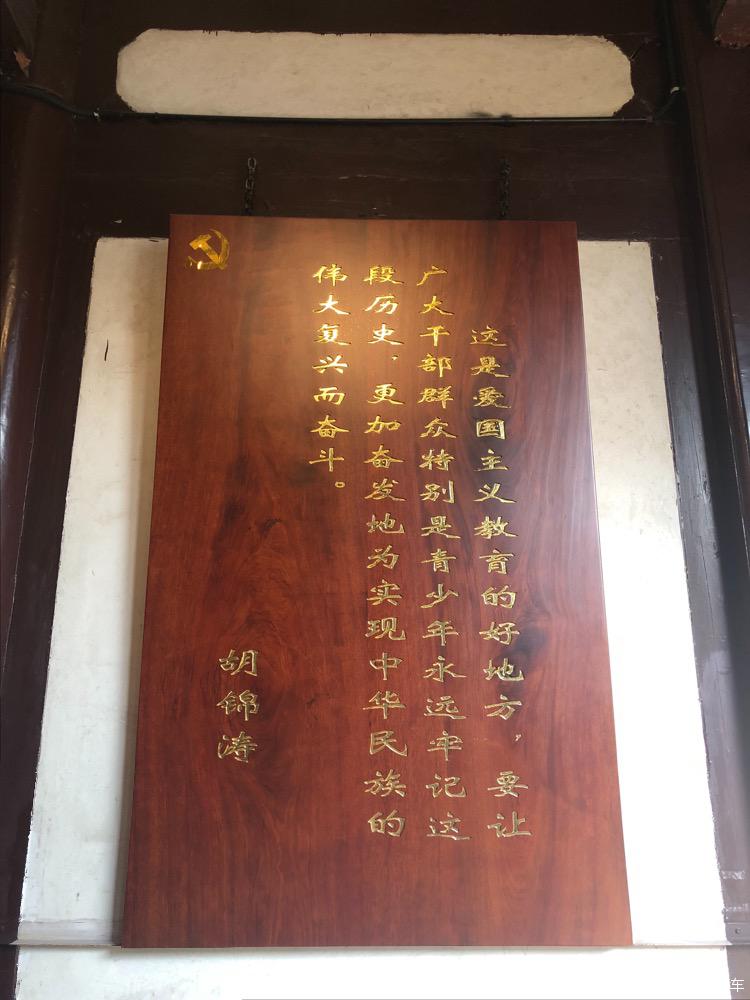 这是爱国主义教育的好地方，要让
广大干部群众特别是青少年永远牢记这
段历史，更加奋发地为实现中华民族的
伟大复兴而奋斗。
胡锦涛
车